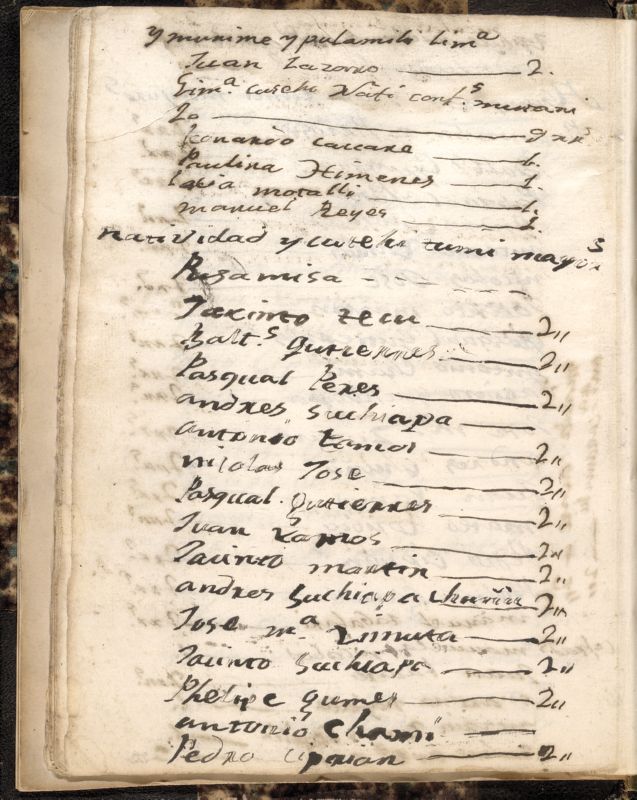 y munime y pulamihi limª
Juan Lazorro 2.
Limª cutehi Nati contˢ
20 9
Leonardo caccare 1.
Paulina Himenes 1.
motalli 1.
manuel Reyes 1.
natividad y cutehi tumi
Rusa misa
Jaxinto tecu 2"
Baltˢ Gutierrres 2"
Pasqual Peres 2"
andres Suchiapa
antonio Ramos 2"
nicolas Jose 2"
Pasqual Gutierrres 2"
Juan Ramos 2"
Jacinto martin 2"
andres Suchiapa 2"
Jose mª 2"
Jacinto Suchiapa 2"
Phelipe gumes 2"
antonio Chami
Pedro ciprian 2"